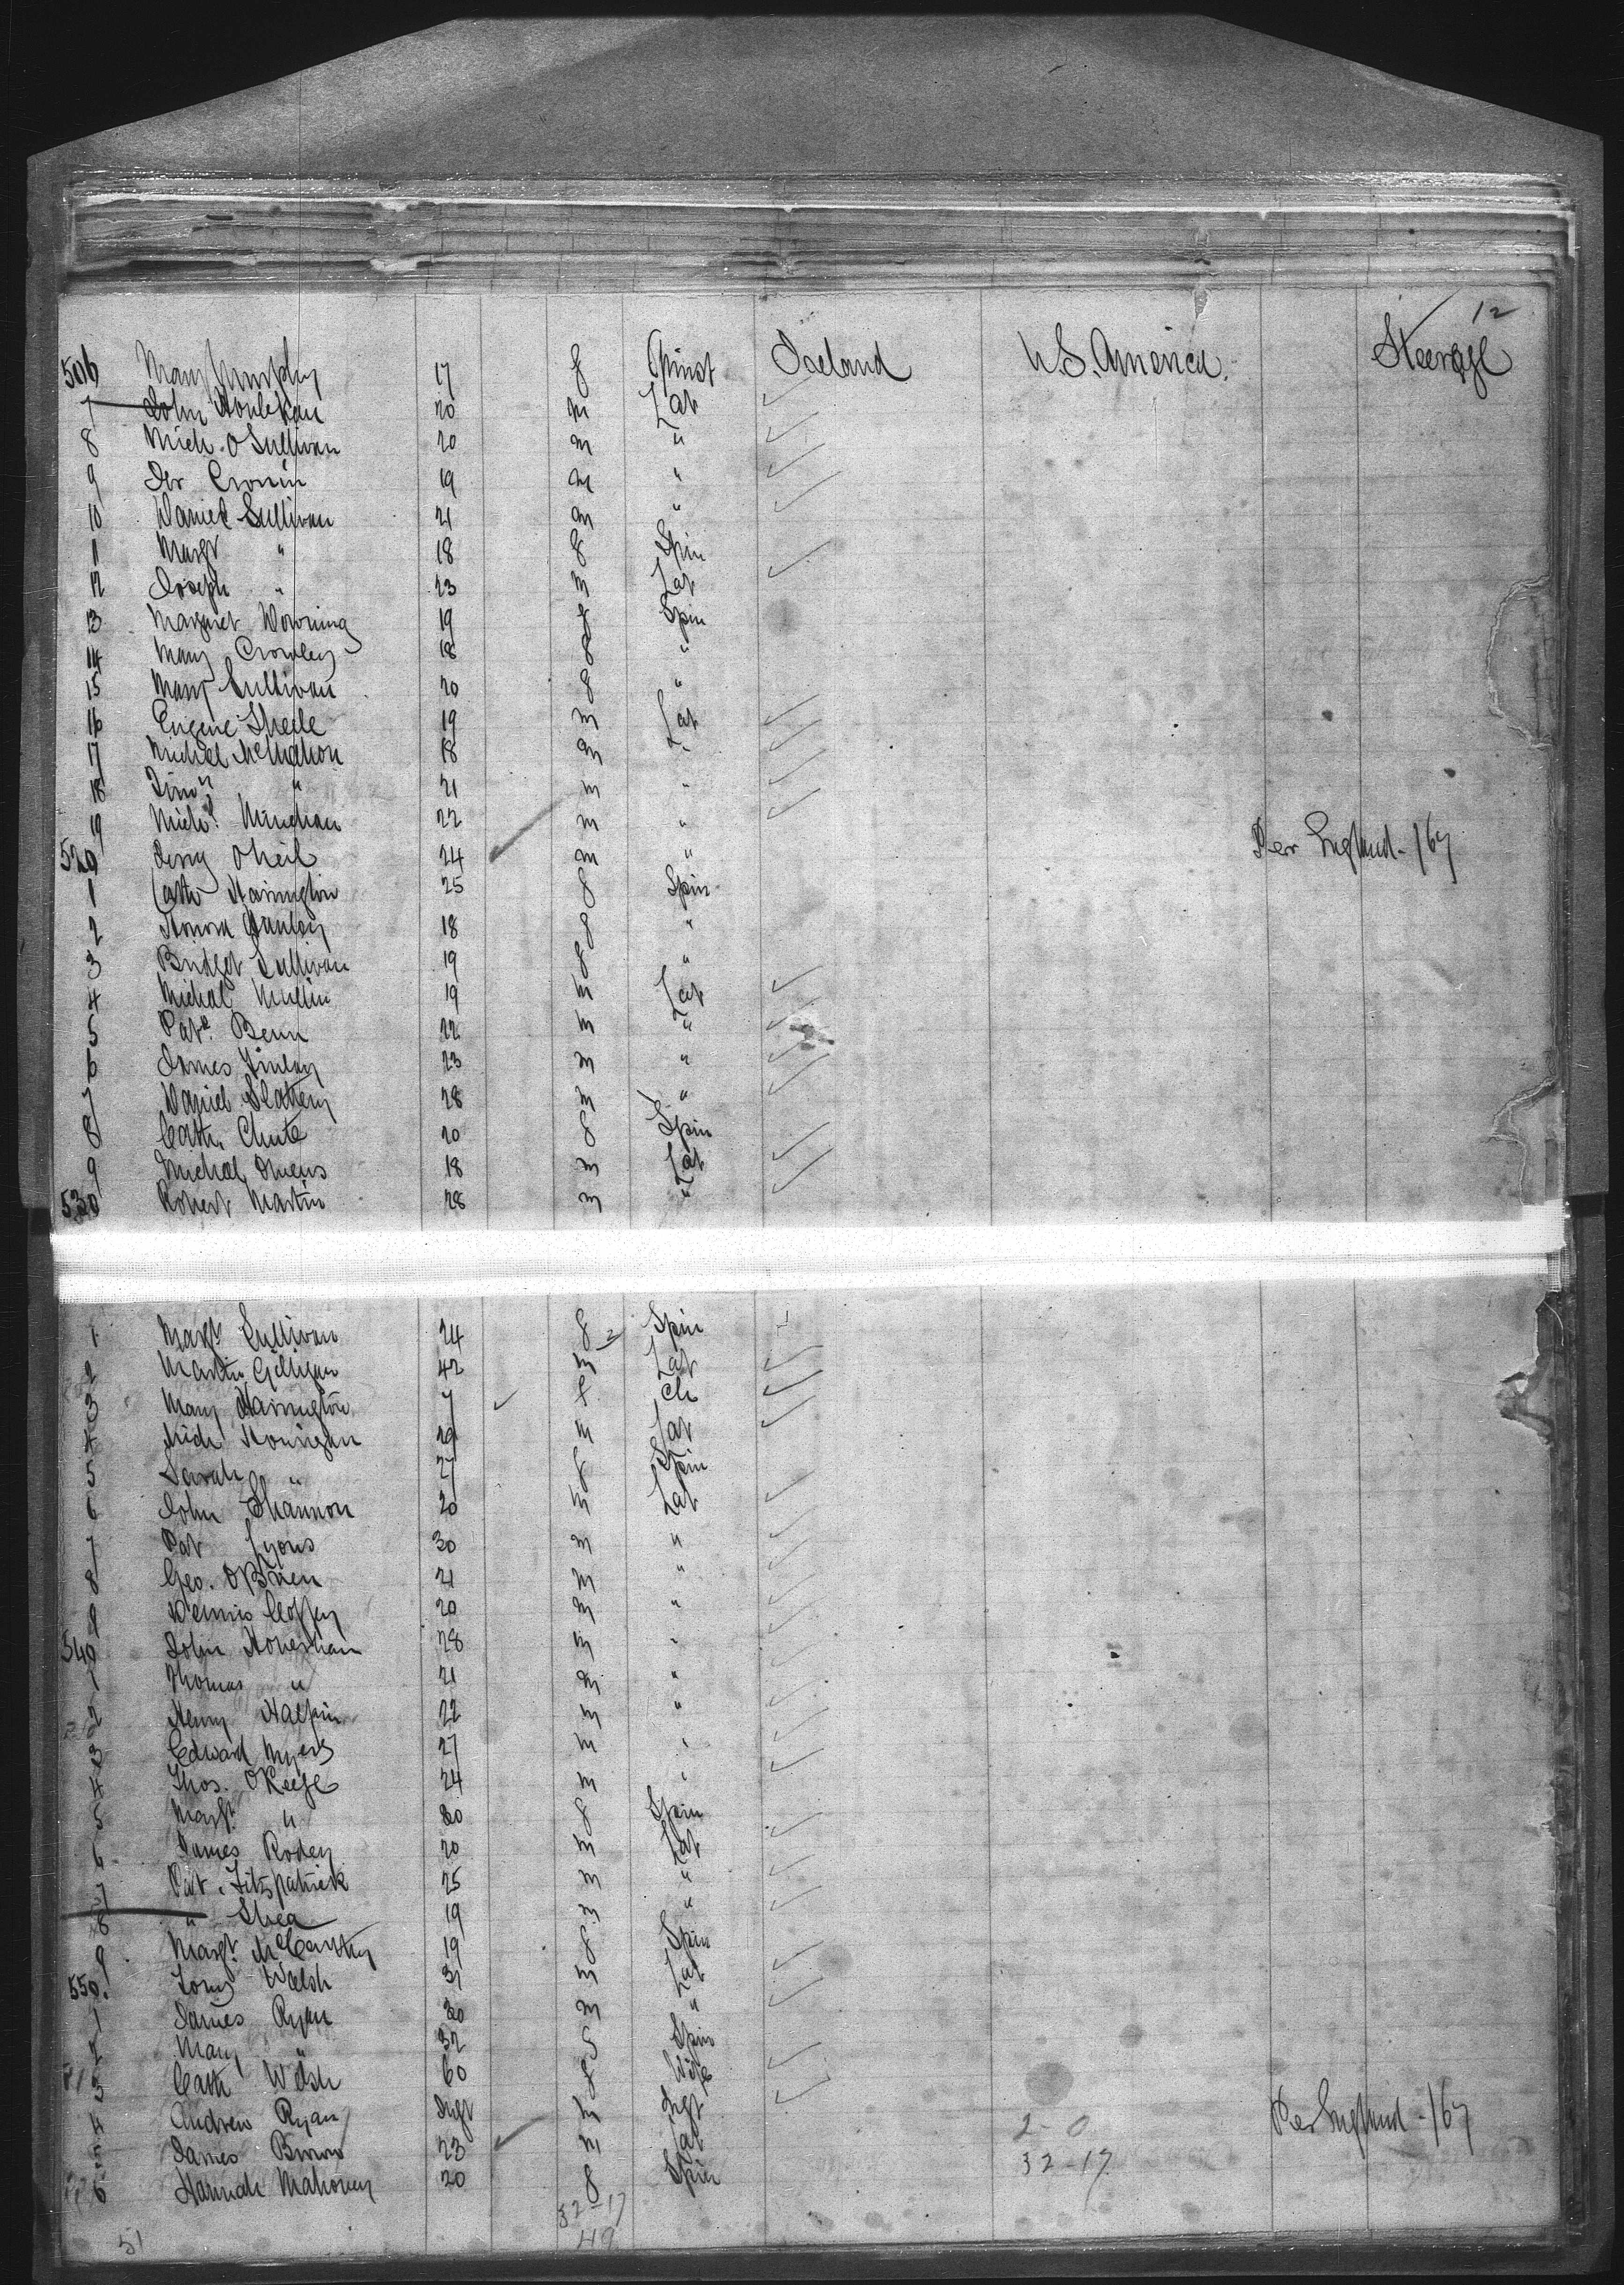 12
506 Mary Murphy 17 f Spinst Ireland U.S. America. Steerage
7 John Houlihan 20 m Lab
8 Mich. O Sullivan 20 m "
9 Jer Cronin 19 m "
10 Daniel Sullivan 21 m "
1 Margt " 18 f Spin
12 Joseph " 23 m Lab
13 Margaret Downing 19 f Spin
14 Mary Crowley 18 f "
15 Mary Sullivan 20 f "
16 Eugene Sheele 19 m Lab
17 Michael McMahon 18 m "
18 Timy " 21 m "
19 Michl. Minehan 22 m "
520 Jerry O Neil 24 m " Per England - /67
1 Cath Harrington 25 f Spin
2 Honora 18 f "
3 Bridget Sullivan 19 f "
4 Michal Mullin 19 m Lab
5 Patk. Benn 22 m "
6 James Finlay 23 m "
7 Daniel Slattery 28 m "
8 Cath. Chute 20 f Spin
9 Michael Owens 18 m Lab
530 Robert Martin 28 m "
1 Margt Sullivan 24 f Spin
2 Martin Gilligan 42 m Lab
3 Mary Harrington 7 f Ch
4 Mich Hourigan 29 m Lab
5 Sarah " 27 f Spin
6 John Shannon 20 m Lab
7 Pat Lyons 30 m "
8 Geo. O Brien 21 m "
9 Dennis Coffey 20 m "
540 John 28 m "
1 Thomas " 21 m "
2 Henry Halpin 22 m "
3 Edward Myers 27 m "
4 Thos. O Keefe 24 m "
5 Margt. " 20 f Spin
6 James Roden 20 m Lab
7 Pat. Fitzpatrick 25 m "
8 " Shea 19 m "
9 Margt. McCarthy 19 f Spin
550. Tomy Walsh 31 m Lab
1 James Ryan 30 m "
2 Mary " 32 f Spin
3 Cath Welsh 60 f Wife
4 Andrew Ryan Inft m Inft
5 James Brown 23 m Lab 2-0 Per England - /67
6 Hannah Mahoney 20 f Spin 32-17
32-17
51 49